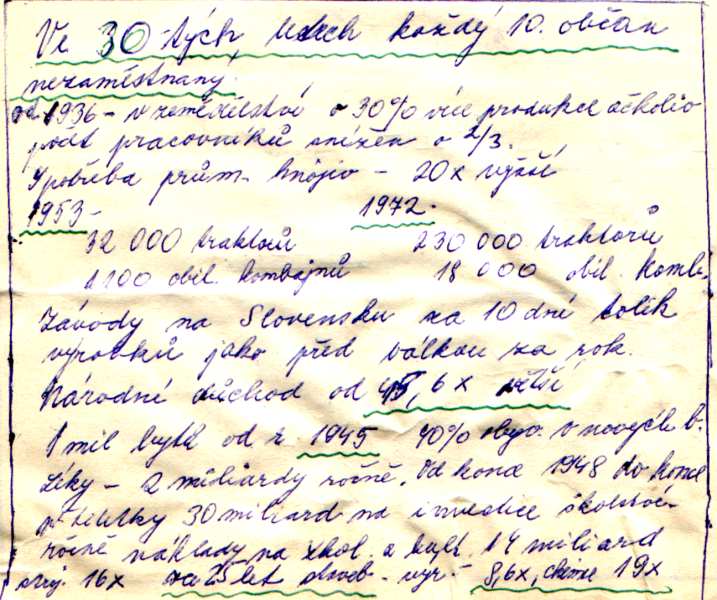 Ve 30-tých letech každý 10. občan
nezaměstnaný.
od 1936 - v zemědělství o 30% více produkce ačkoliv
počt pracovníků snížen o 2/3.
Spotřeba prům. hnojiv - 20x vyšší
1953 - 1972.
32 000 traktorů 230 000 traktorů
1100 obil. kombajnů 18 000 obil. komb.
Závody na Slovensku za 10 dní tolik
výrobků jako před válkou za rok.
Národní důchod od 45, 6x větší
mil bytů od r. 1945 40% obyv. v nových b.
Léky - 2 miliardy ročně. Od konce 1948 do konce
pětiletky 30 miliard na investice
ročně náklady na škol. a kult. 14 miliard
stroj. 16x za 25 let staveb. výr. - 8,6x, chemie 19x